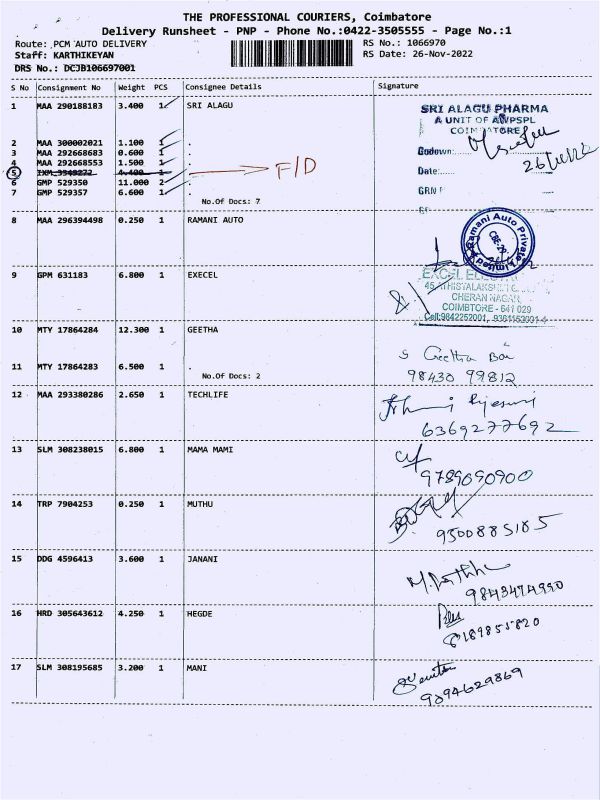 THE PROFESSIONAL COURIERS, Coimbatore
Delivery Runsheet - PNP - Phone No.:0422-3505555 - Page No.:1
Route: PCM AUTO DELIVERY RS No.: 1066970
Staff: KARTHIKEYAN RS Date: 26-Nov-2022
DRS No.: DCJB106697001
S No Consignment No Weight PCS Consignee Details Signature
1 MAA 290188183 3.400 1 SRI ALAGU
SRI ALAGU PHARMA
A UNIT OF AWPSPL
COIMBATORE
2 MAA 300002021 1.100 1 .
3 MAA 292668683 0.600 1 . Godown:
4 MAA 292668553 1.500 1 .
5 IXM 3949272 4.400 1 . F/D Date:
6 GMP 529350 11.000 2 .
7 GMP 529357 6.600 1 . GRN
No.Of Docs: 7
8 MAA 296394498 0.250 1 RAMANI AUTO
Ramani Auto Private Limited
9 GPM 631183 6.800 1 EXECEL
CHERAN NAGAR
COIMBTORE - 641 029
10 MTY 17864284 12.300 1 GEETHA
11 MTY 17864283 6.500 1 .
98430 99812
No.Of Docs: 2
12 MAA 293380286 2.650 1 TECHLIFE
6369277692
13 SLM 308238015 6.800 1 MAMA MAMI
9789090900
14 TRP 7904253 0.250 1 MUTHU
9500885185
15 DDG 4596413 3.600 1 JANANI
9843474990
16 HRD 305643612 4.250 1 HEGDE
17 SLM 308195685 3.200 1 MANI
9894629869